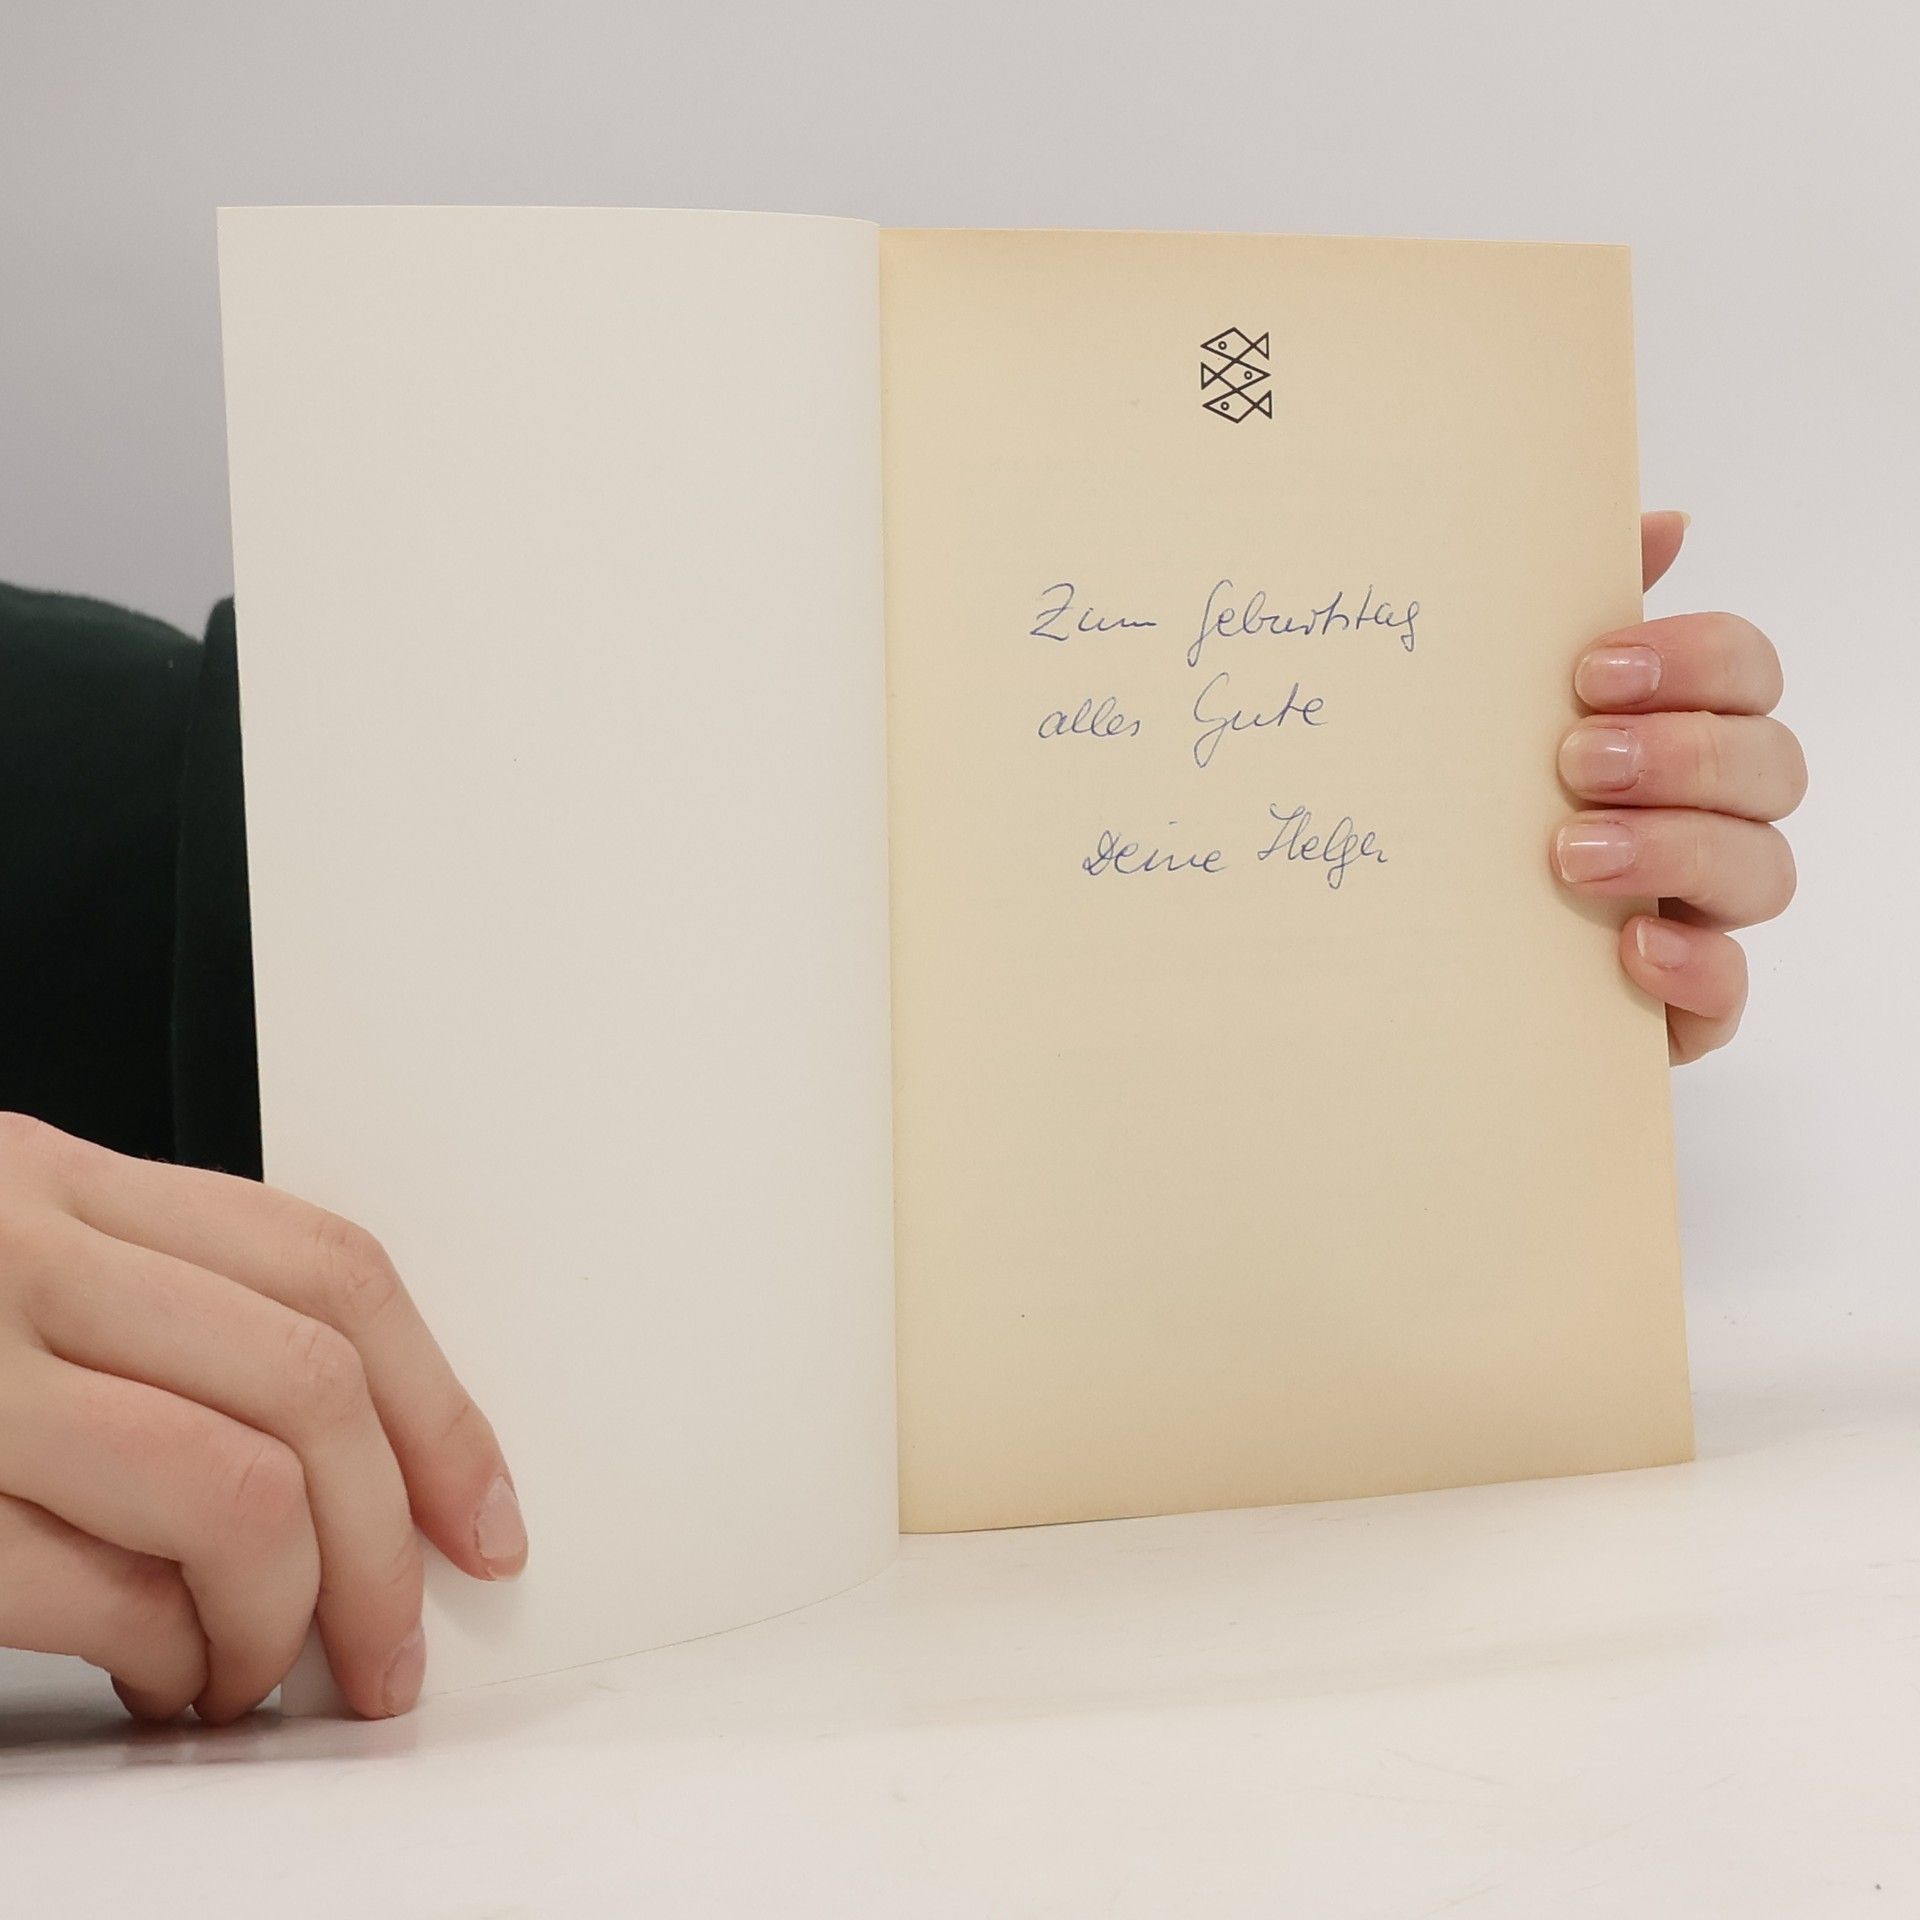 Zum Geburtstag
alles Gute
Deine Helga